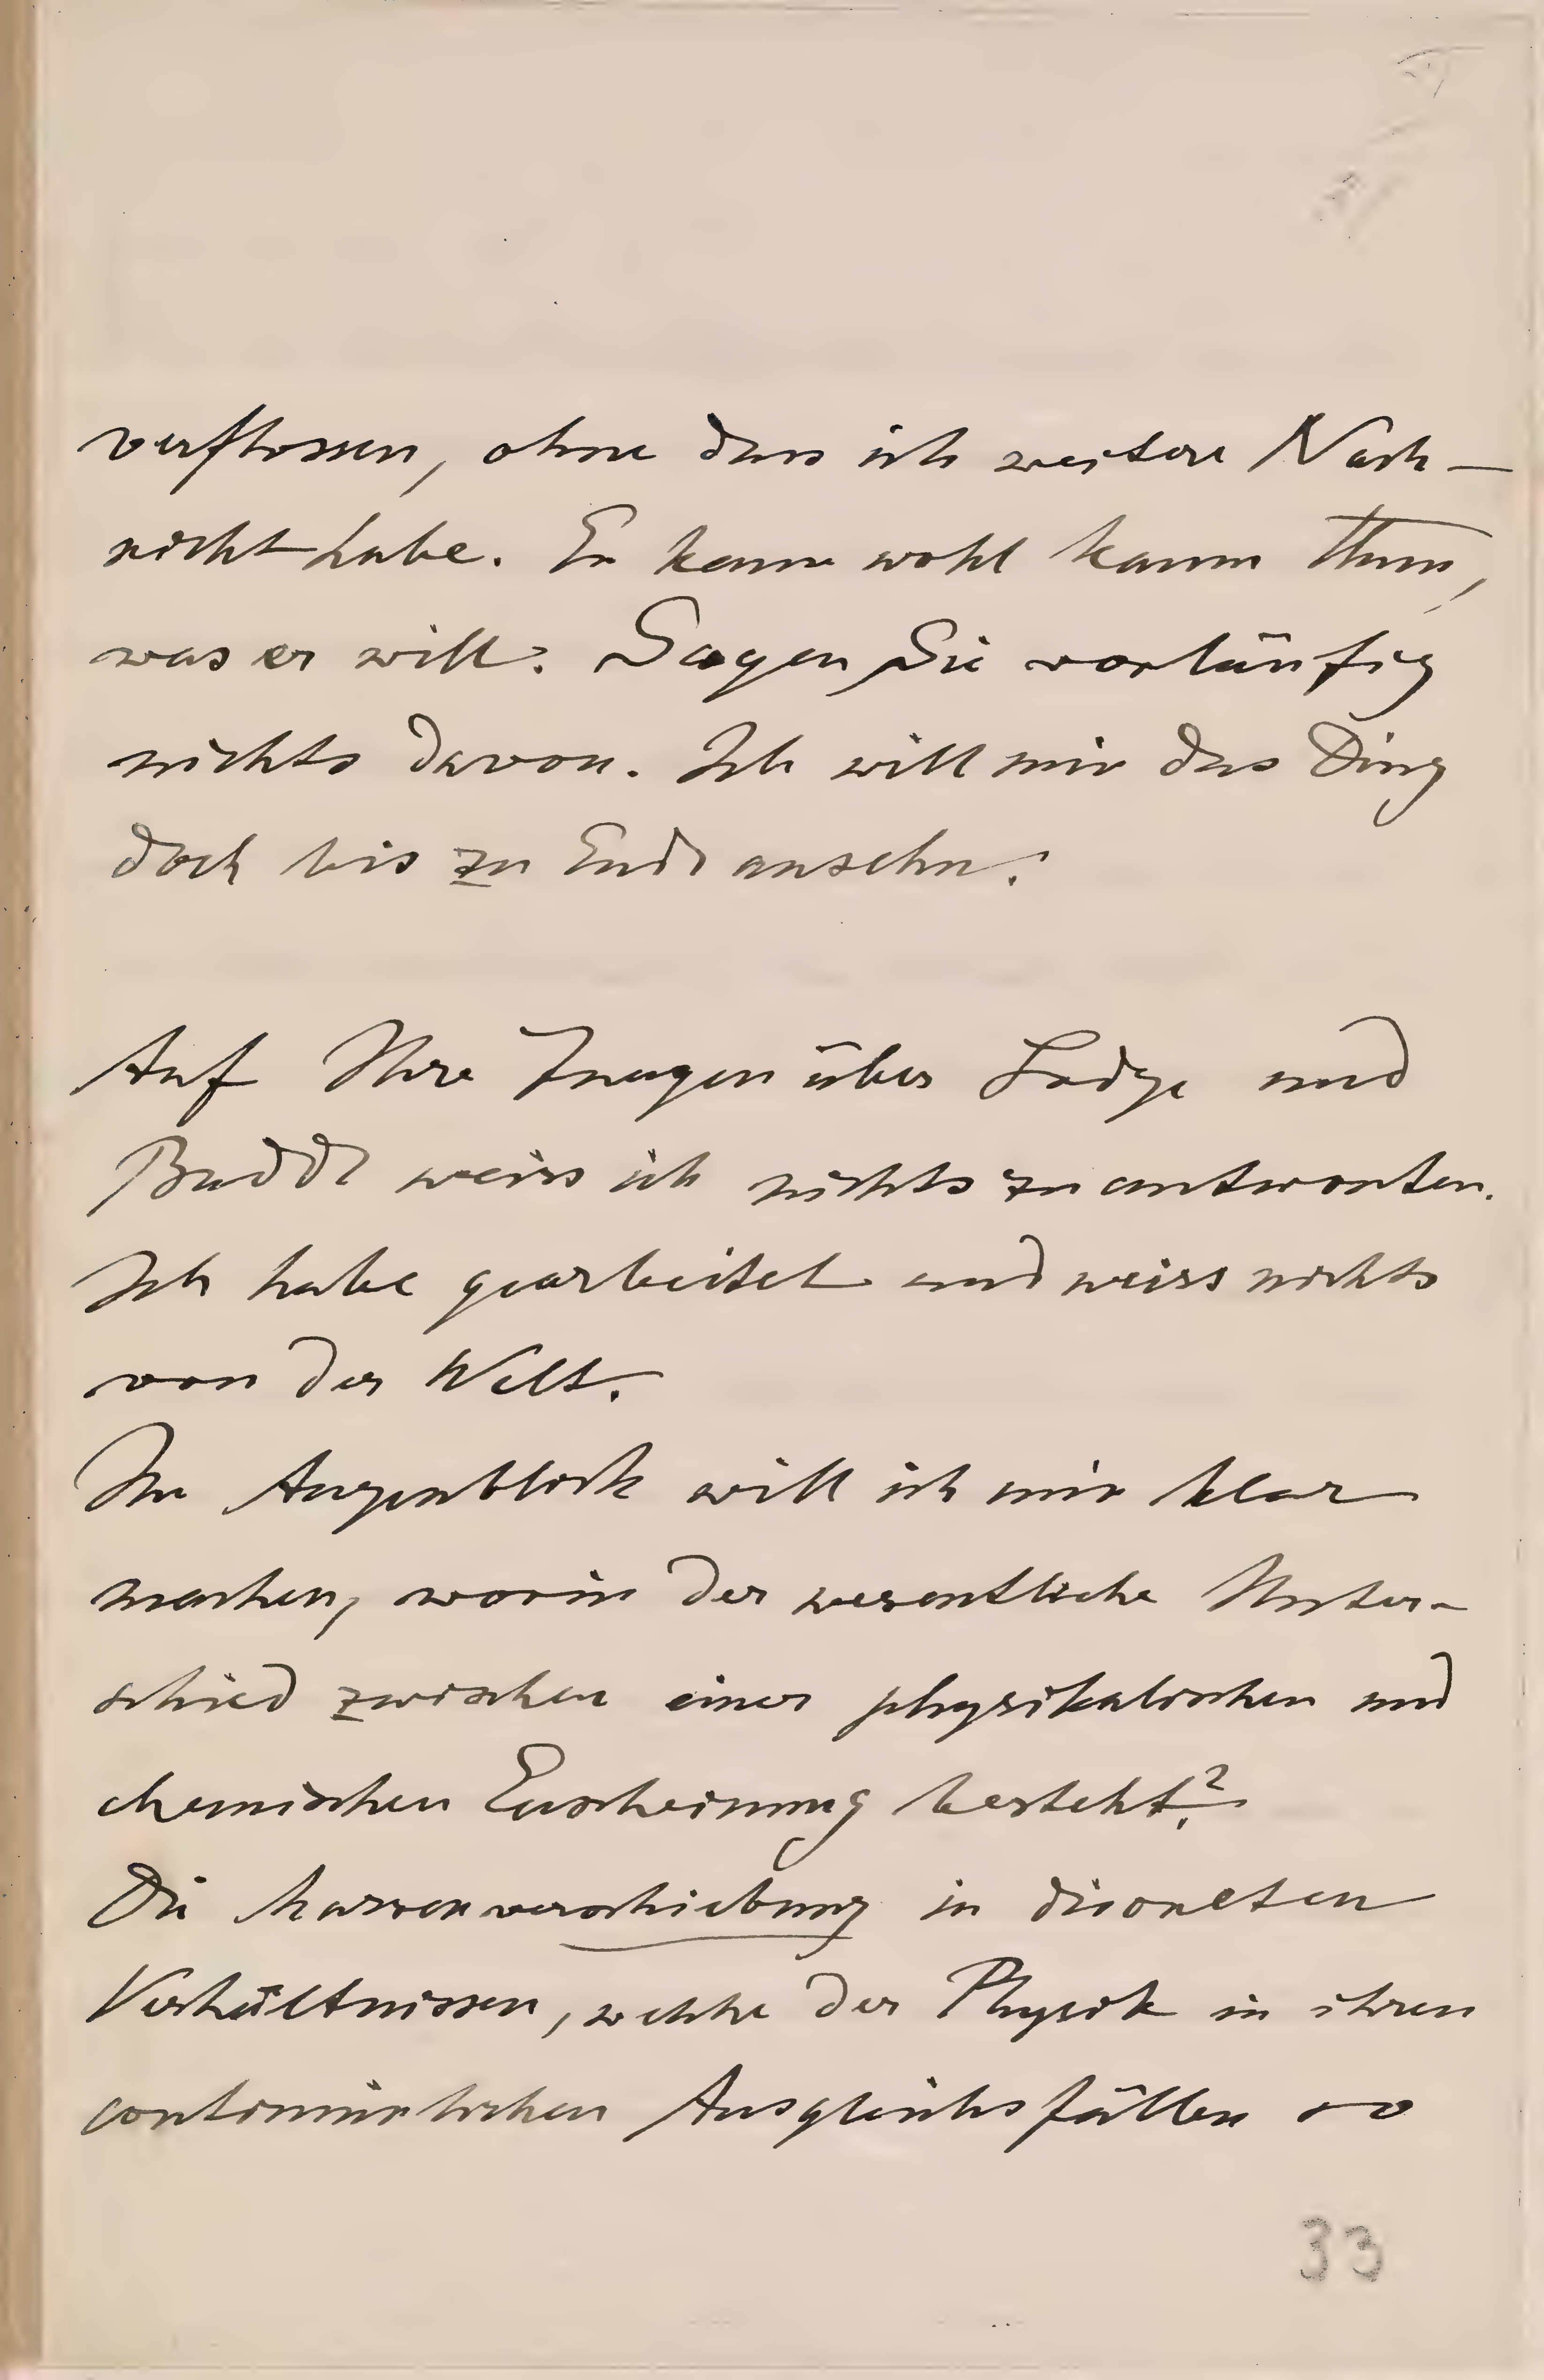 verflossen, ohne dass ich weitere Nach-
richt habe. Er kann wohl kaum thun,
was er will. Sagen Sie vorläufig
nichts davon. Ich will mir das Ding
doch bis zu Ende ansehn.
Auf Ihre Fragen über Lodge und
Budde weiss ich nichts zu antworten.
Ich habe gearbeitet und weiss nichts
von der Welt.
Im Augenblick will ich mir klar
machen, worin der wesentliche Unter-
schied zwischen einer physikalischen und
chemischen Erscheinung besteht?
Die Massenverschiebung in discreten
Verhältnissen, welche der Physik in ihren
continuirlichen Ausgleichsfällen so
33